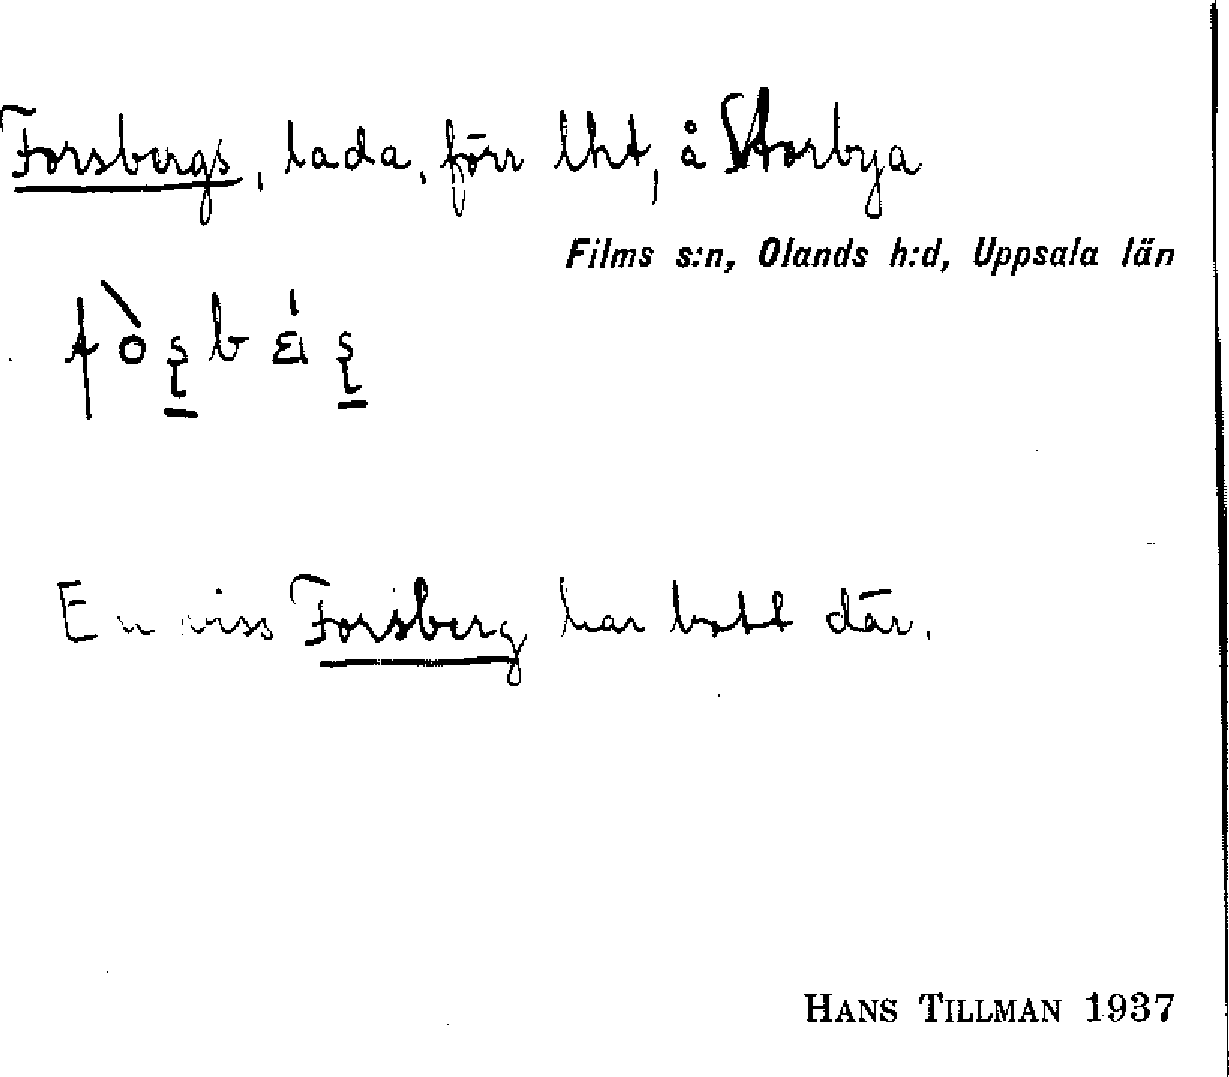 Forsbergs, lada, förr lht, å Storbya
Films s:n, Olands h:d, Uppsala län
En viss Forsberg har bott där.
HANS TILLMAN 1937